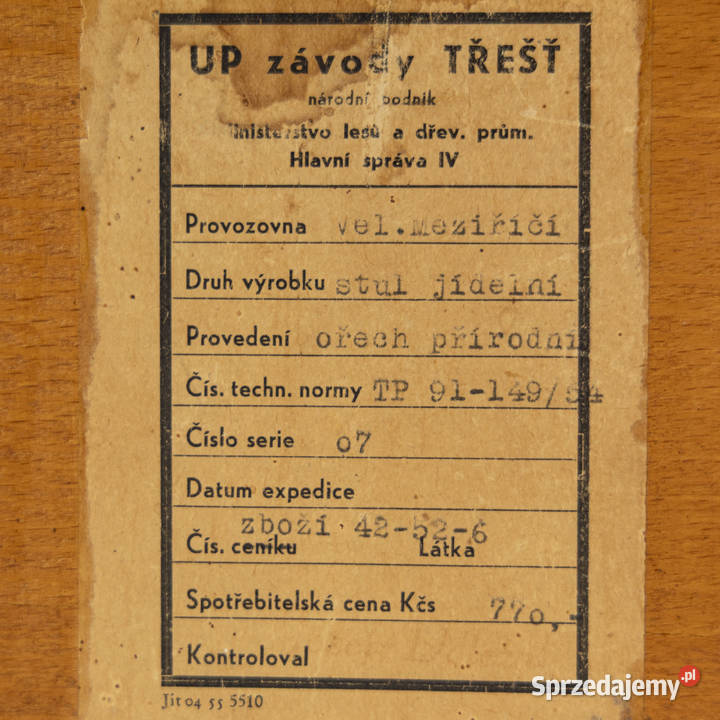 UP závody TŘEŠŤ
národní podnik
Ministerstvo lesů a dřev. prům.
Hlavní správa IV
Provozovna Vel.Meziříčí
Druh výrobku stul jídelní
Provedení ořech přírodní
Čís. techn. normy TP 91-149/54
Číslo serie 07
Datum expedice
zboží 42-52-6
Čís. ceníku Látka
Spotřebitelská cena Kčs 770,-
Kontroloval
Jit 04 55 5510
Sprzedajemy.pl